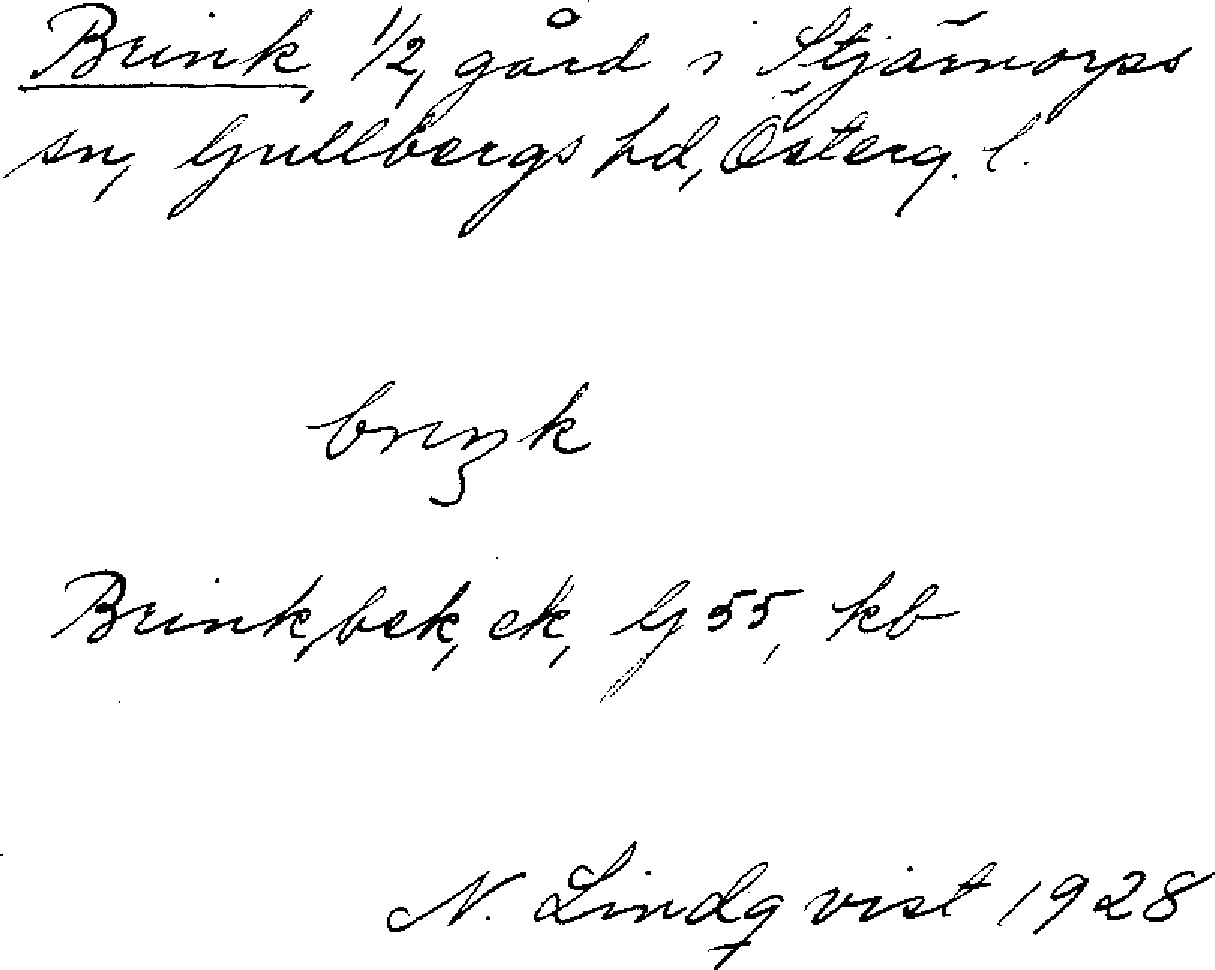 Brink, 1/2, gård i Stjärnorps
sn, Gullbergs hd, Österg. l.
briŋk
Brink, bek, ek, G 55, kb
N. Lindqvist 1928